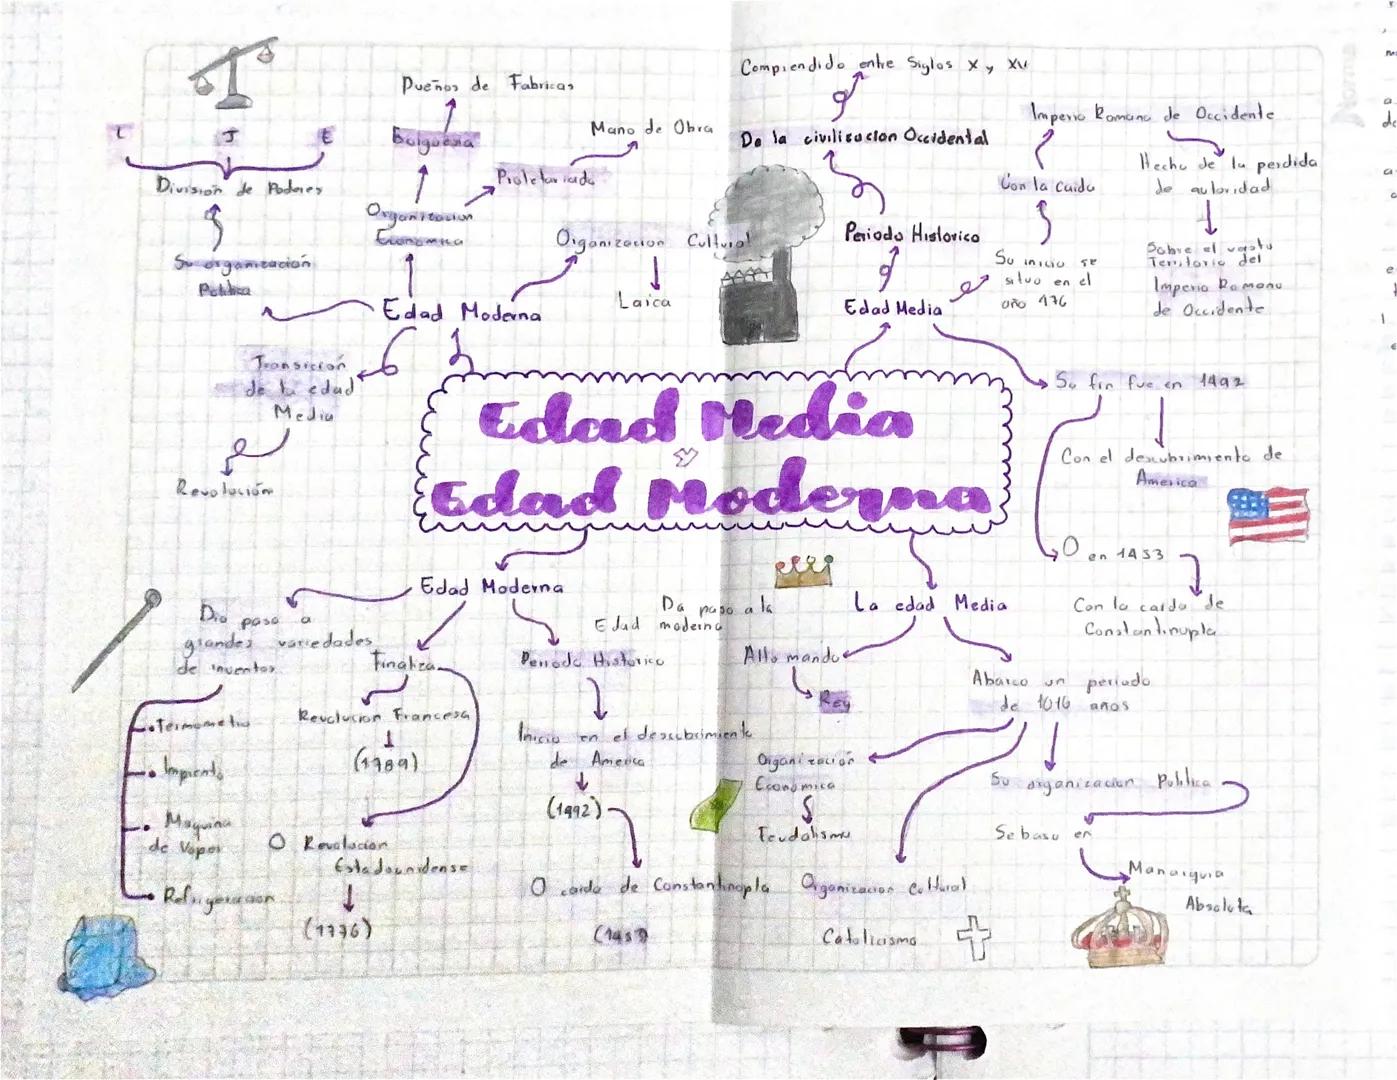 Edad Media
y
Edad Moderna
L J E
División de Poderes
Su organización
Politica
Dueños de Fabricas
Burguesia
Mano de Obra
Proletariado
Organizacion
Economica
Organizacion Cultural
Laica
Edad Moderna
Transición
de la edad
Media
Revolución
Comprendido entre Siglos X y XV
De la civilizacion Occidental
Periodo Historico
Edad Media
Imperio Romano de Occidente
Con la caida
Su inicio se
situo en el
año 476
Hecho de la perdida
de autoridad
Sobre el vasto
Territorio del
Imperio Romano
de Occidente
Su fin fue en 1492
Con el descubrimiento de
America
O en 1453
Con la caida de
Constantinupla
Edad Moderna
Dio paso a
grandes variedades
de inventos
Termometro
Imprenta
Maquina
de Vapor
Refrigeracion
Finaliza
Revolucion Francesa
(1789)
O Revolucion
Estadounidense
(1776)
Periodo Historico
Inicio en el descubrimiento
de America
(1492)
O caida de Constantinopla
(1453)
Da paso a la
Edad moderna
La edad Media
Alto mando
Rey
Abarco un periodo
de 1016 años
Organización
Economica
Feudalismo
Organizacion cultural
Catolicismo
Su organizacion Politica
Se baso en
Manarquia
Absoluta